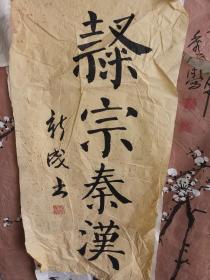 隸宗秦漢
新成书